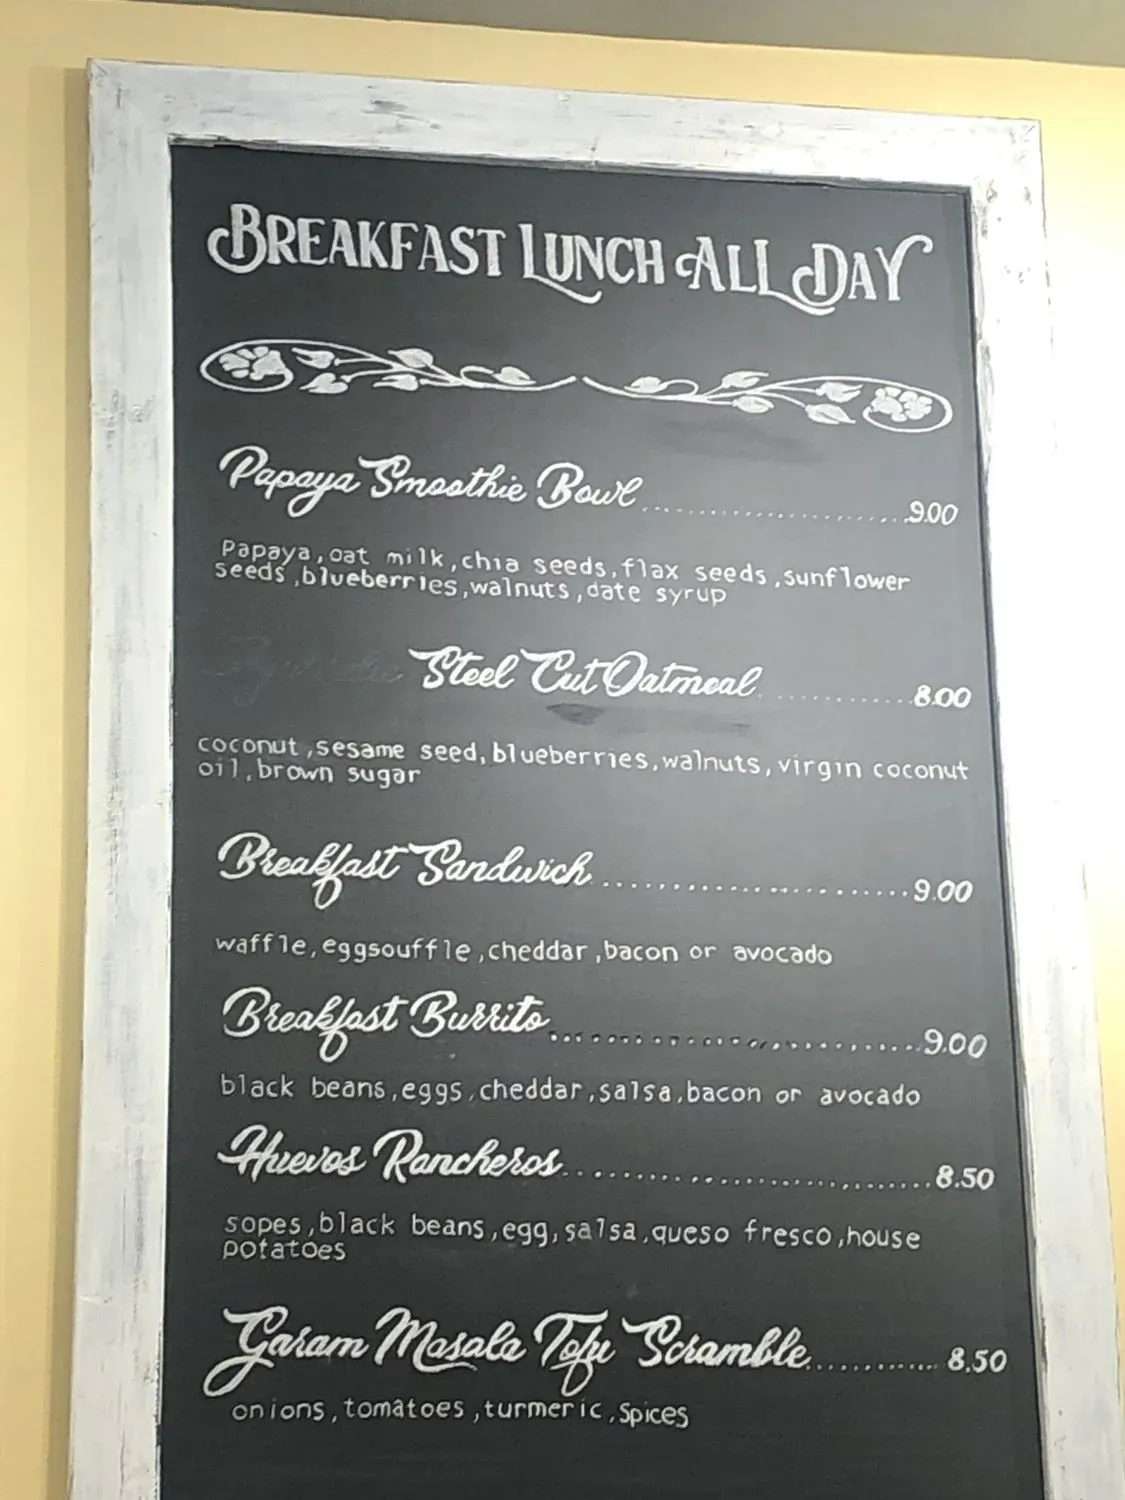 BREAKFAST LUNCH ALL DAY
Papaya Smoothie Bowl....................9.00
Papaya,oat milk,chia seeds,flax seeds,sunflower
seeds,blueberries,walnuts,date syrup
Steel Cut Oatmeal..............8.00
coconut,sesame seed,blueberries,walnuts,virgin coconut
oil,brown sugar
Breakfast Sandwich.......................9.00
waffle,eggsouffle,cheddar,bacon or avocado
Breakfast Burrito...........................9.00
black beans,eggs,cheddar,salsa,bacon or avocado
Huevos Rancheros...........................8.50
sopes,black beans,egg,salsa,queso fresco,house
potatoes
Garam Masala Tofu Scramble............8.50
onions,tomatoes,turmeric,spices